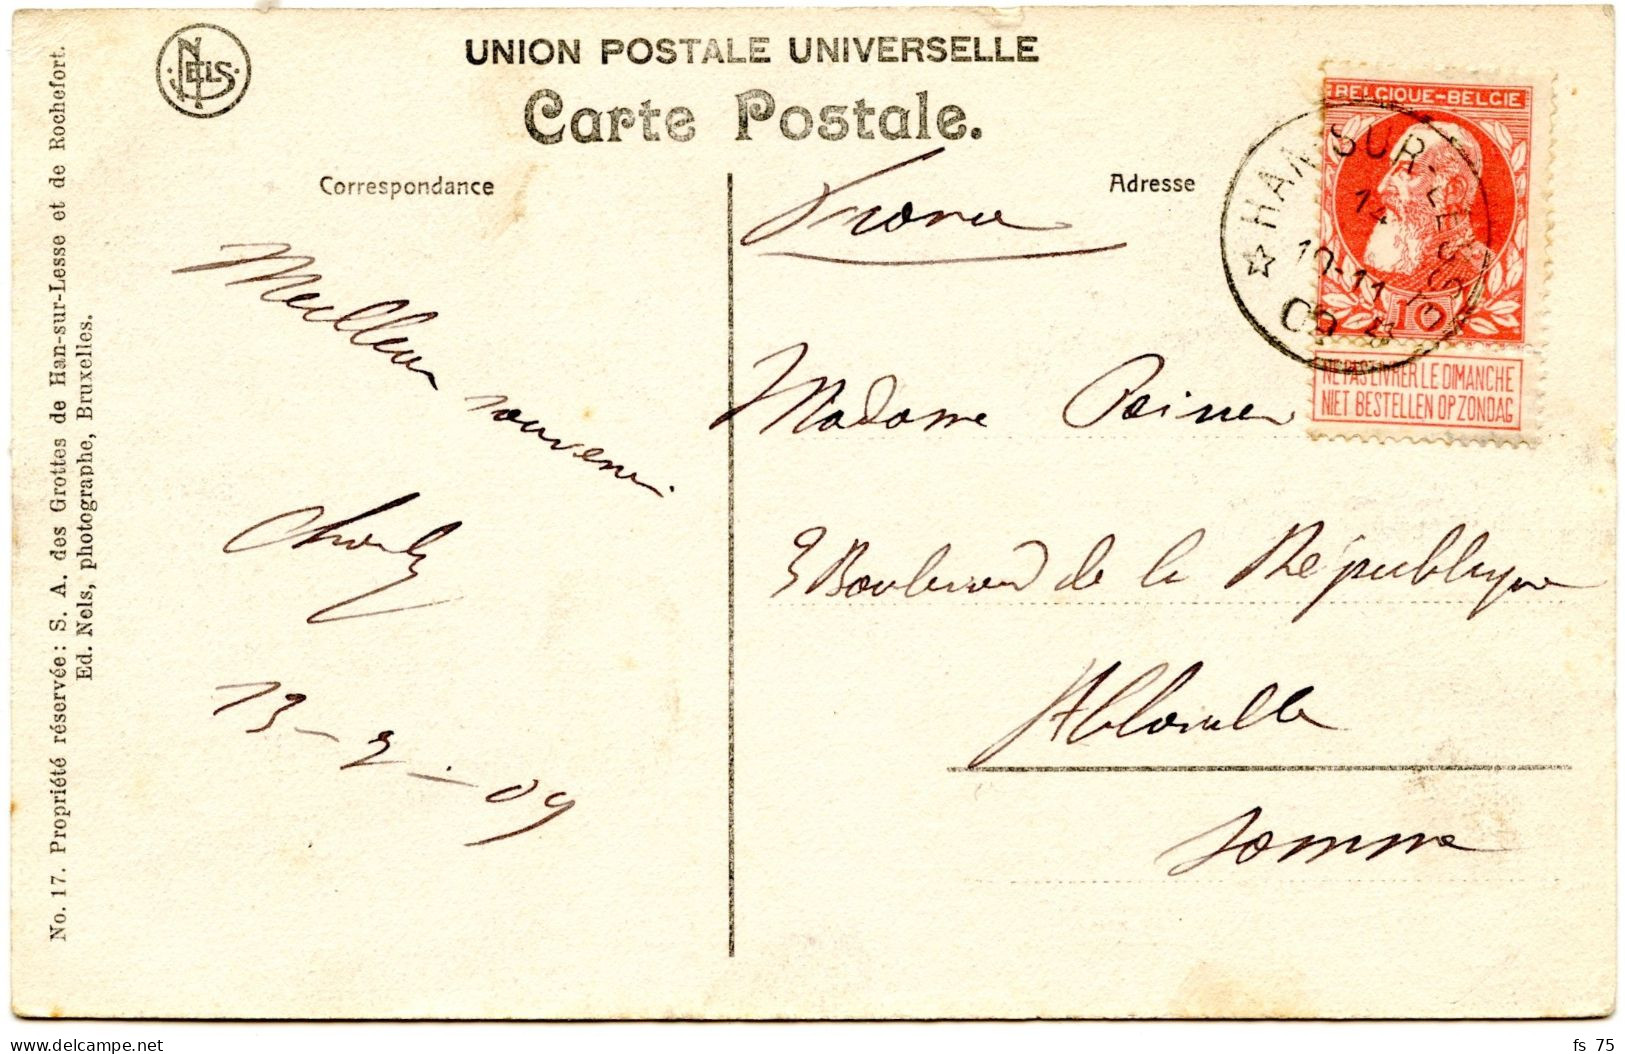 NELS
UNION POSTALE UNIVERSELLE
Carte Postale.
Correspondance
Adresse
No. 17. Propriété réservée: S. A. des Grottes de Han-sur-Lesse et de Rochefort.
Ed. Nels, photographe, Bruxelles.
BELGIQUE-BELGIE
10
NE PAS LIVRER LE DIMANCHE
NIET BESTELLEN OP ZONDAG
HAN-SUR-LESSE
14
10-11
09
Meilleur
souvenir
Charly
13-2-09
Madame
3 Boulevard de la République
Somme
fs 75